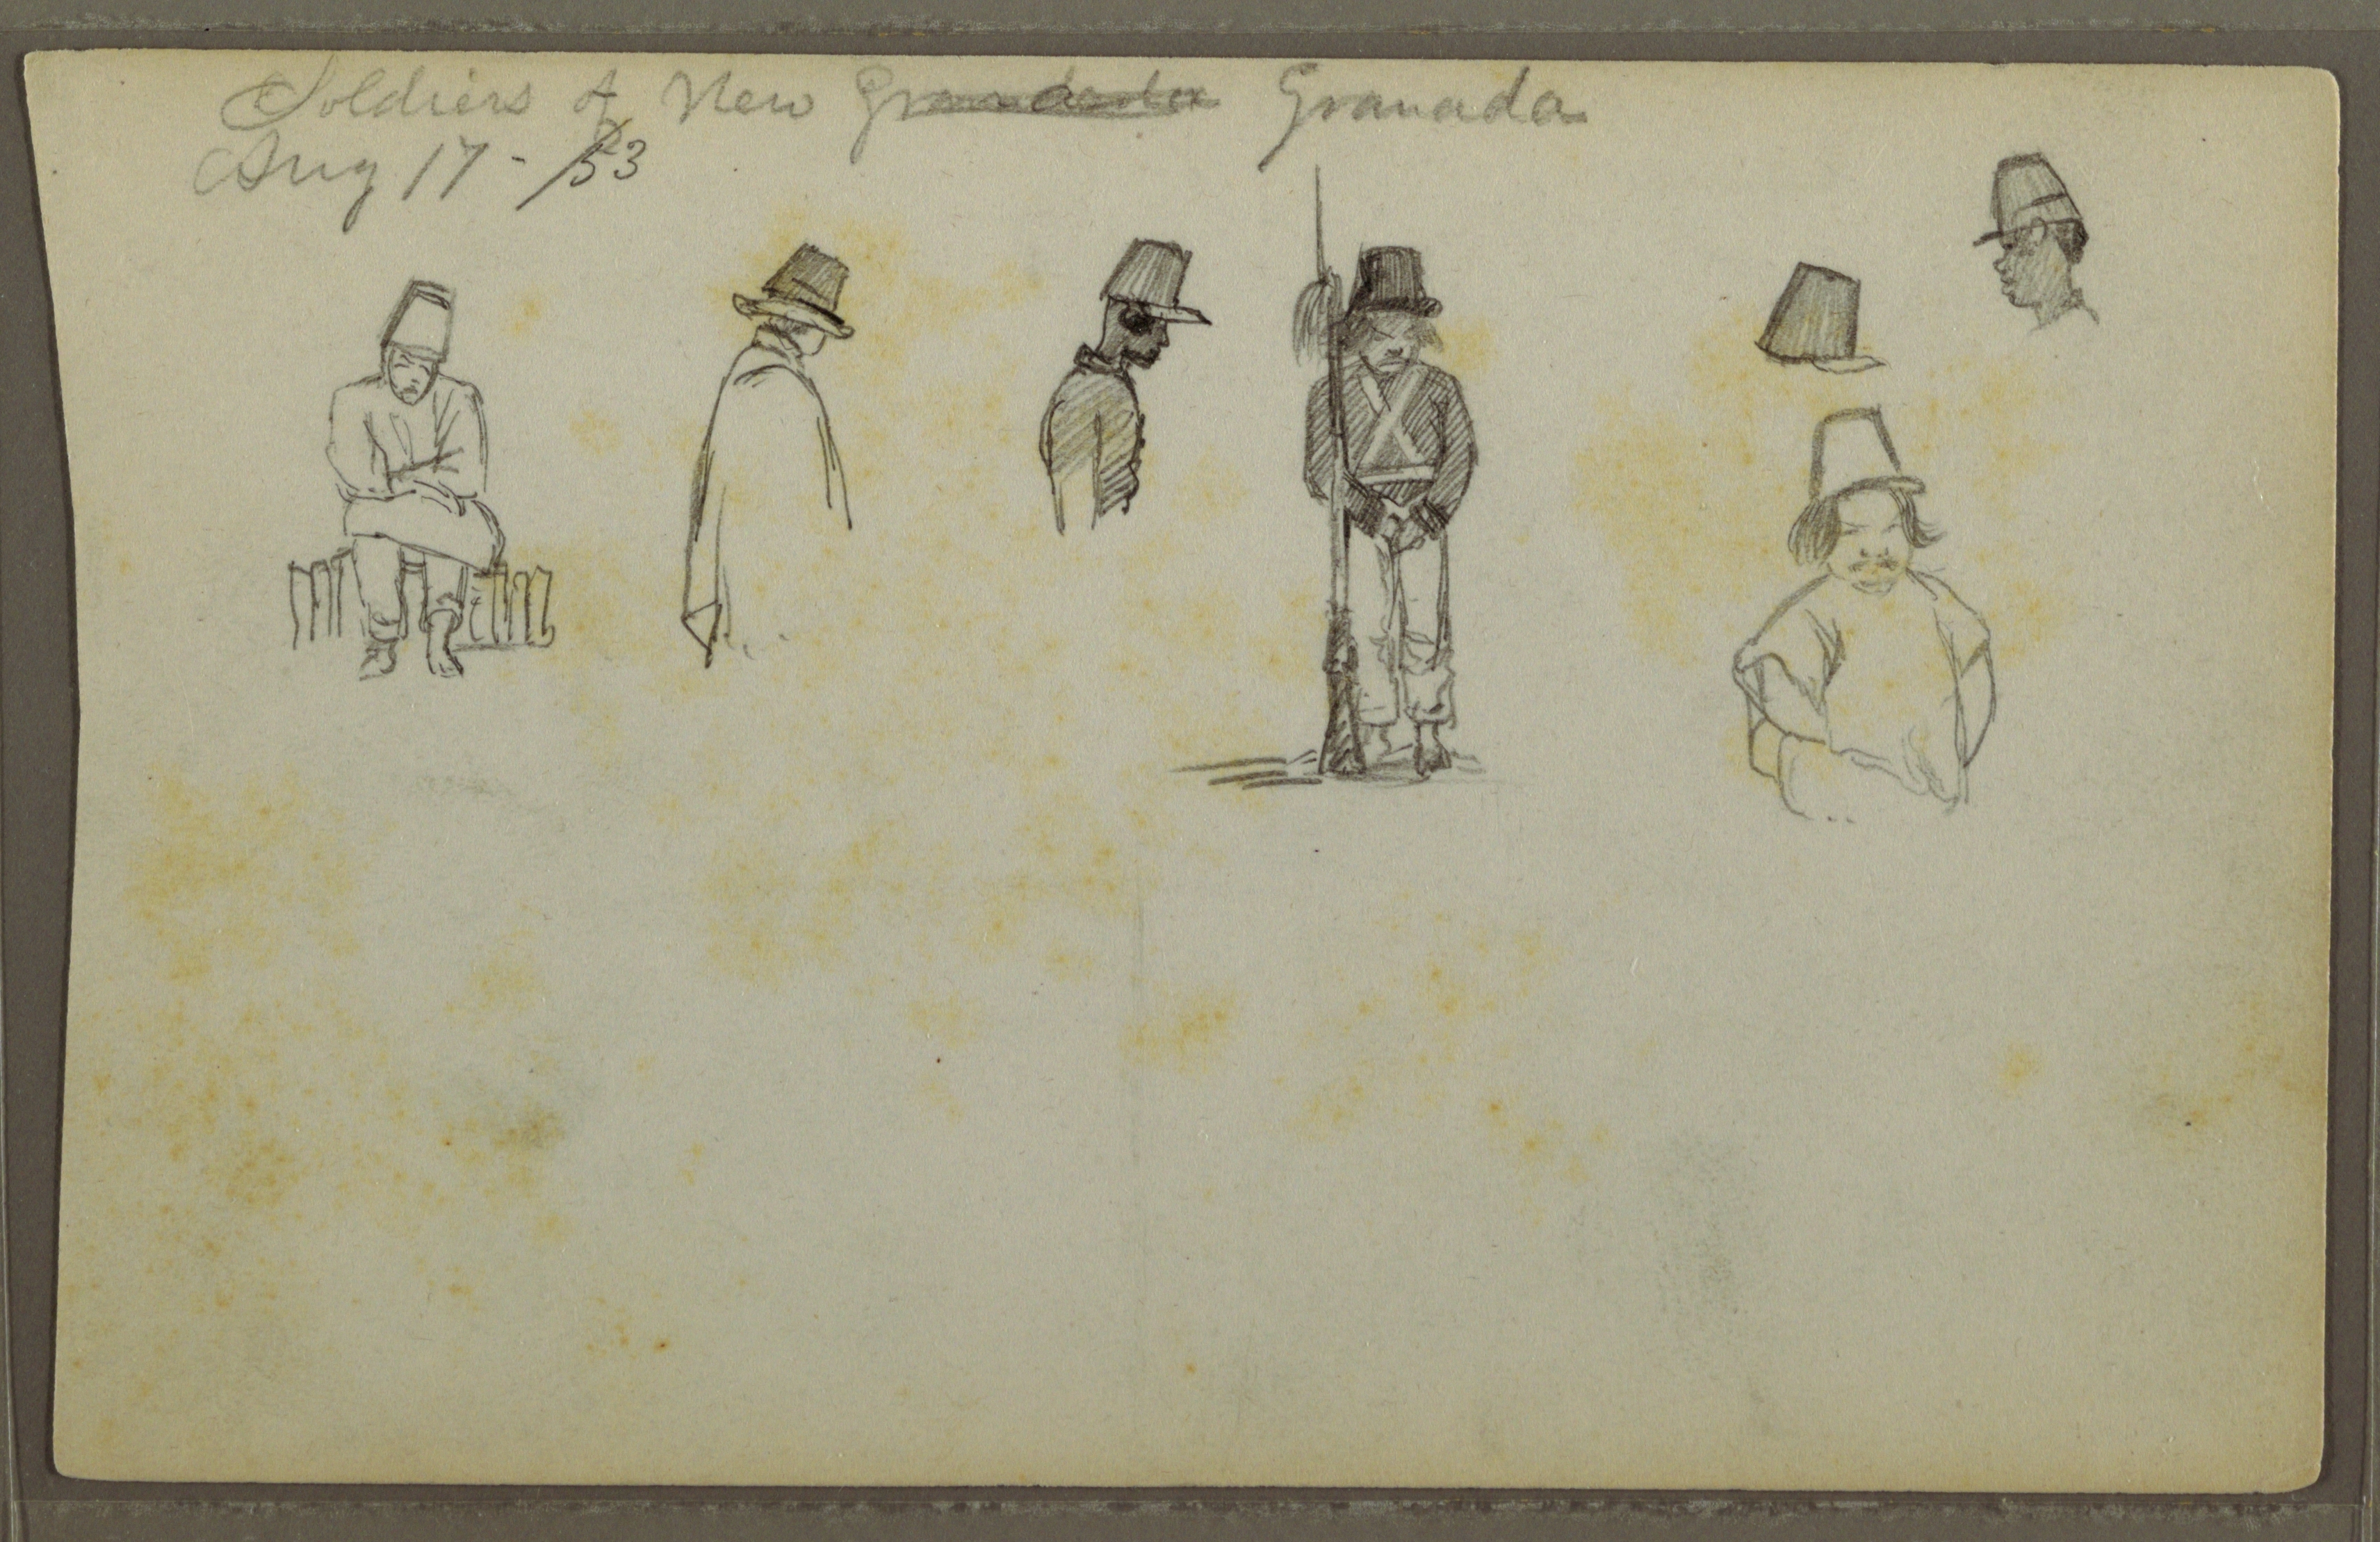 Soldiers of New Granada Granada
Aug 17 - /53